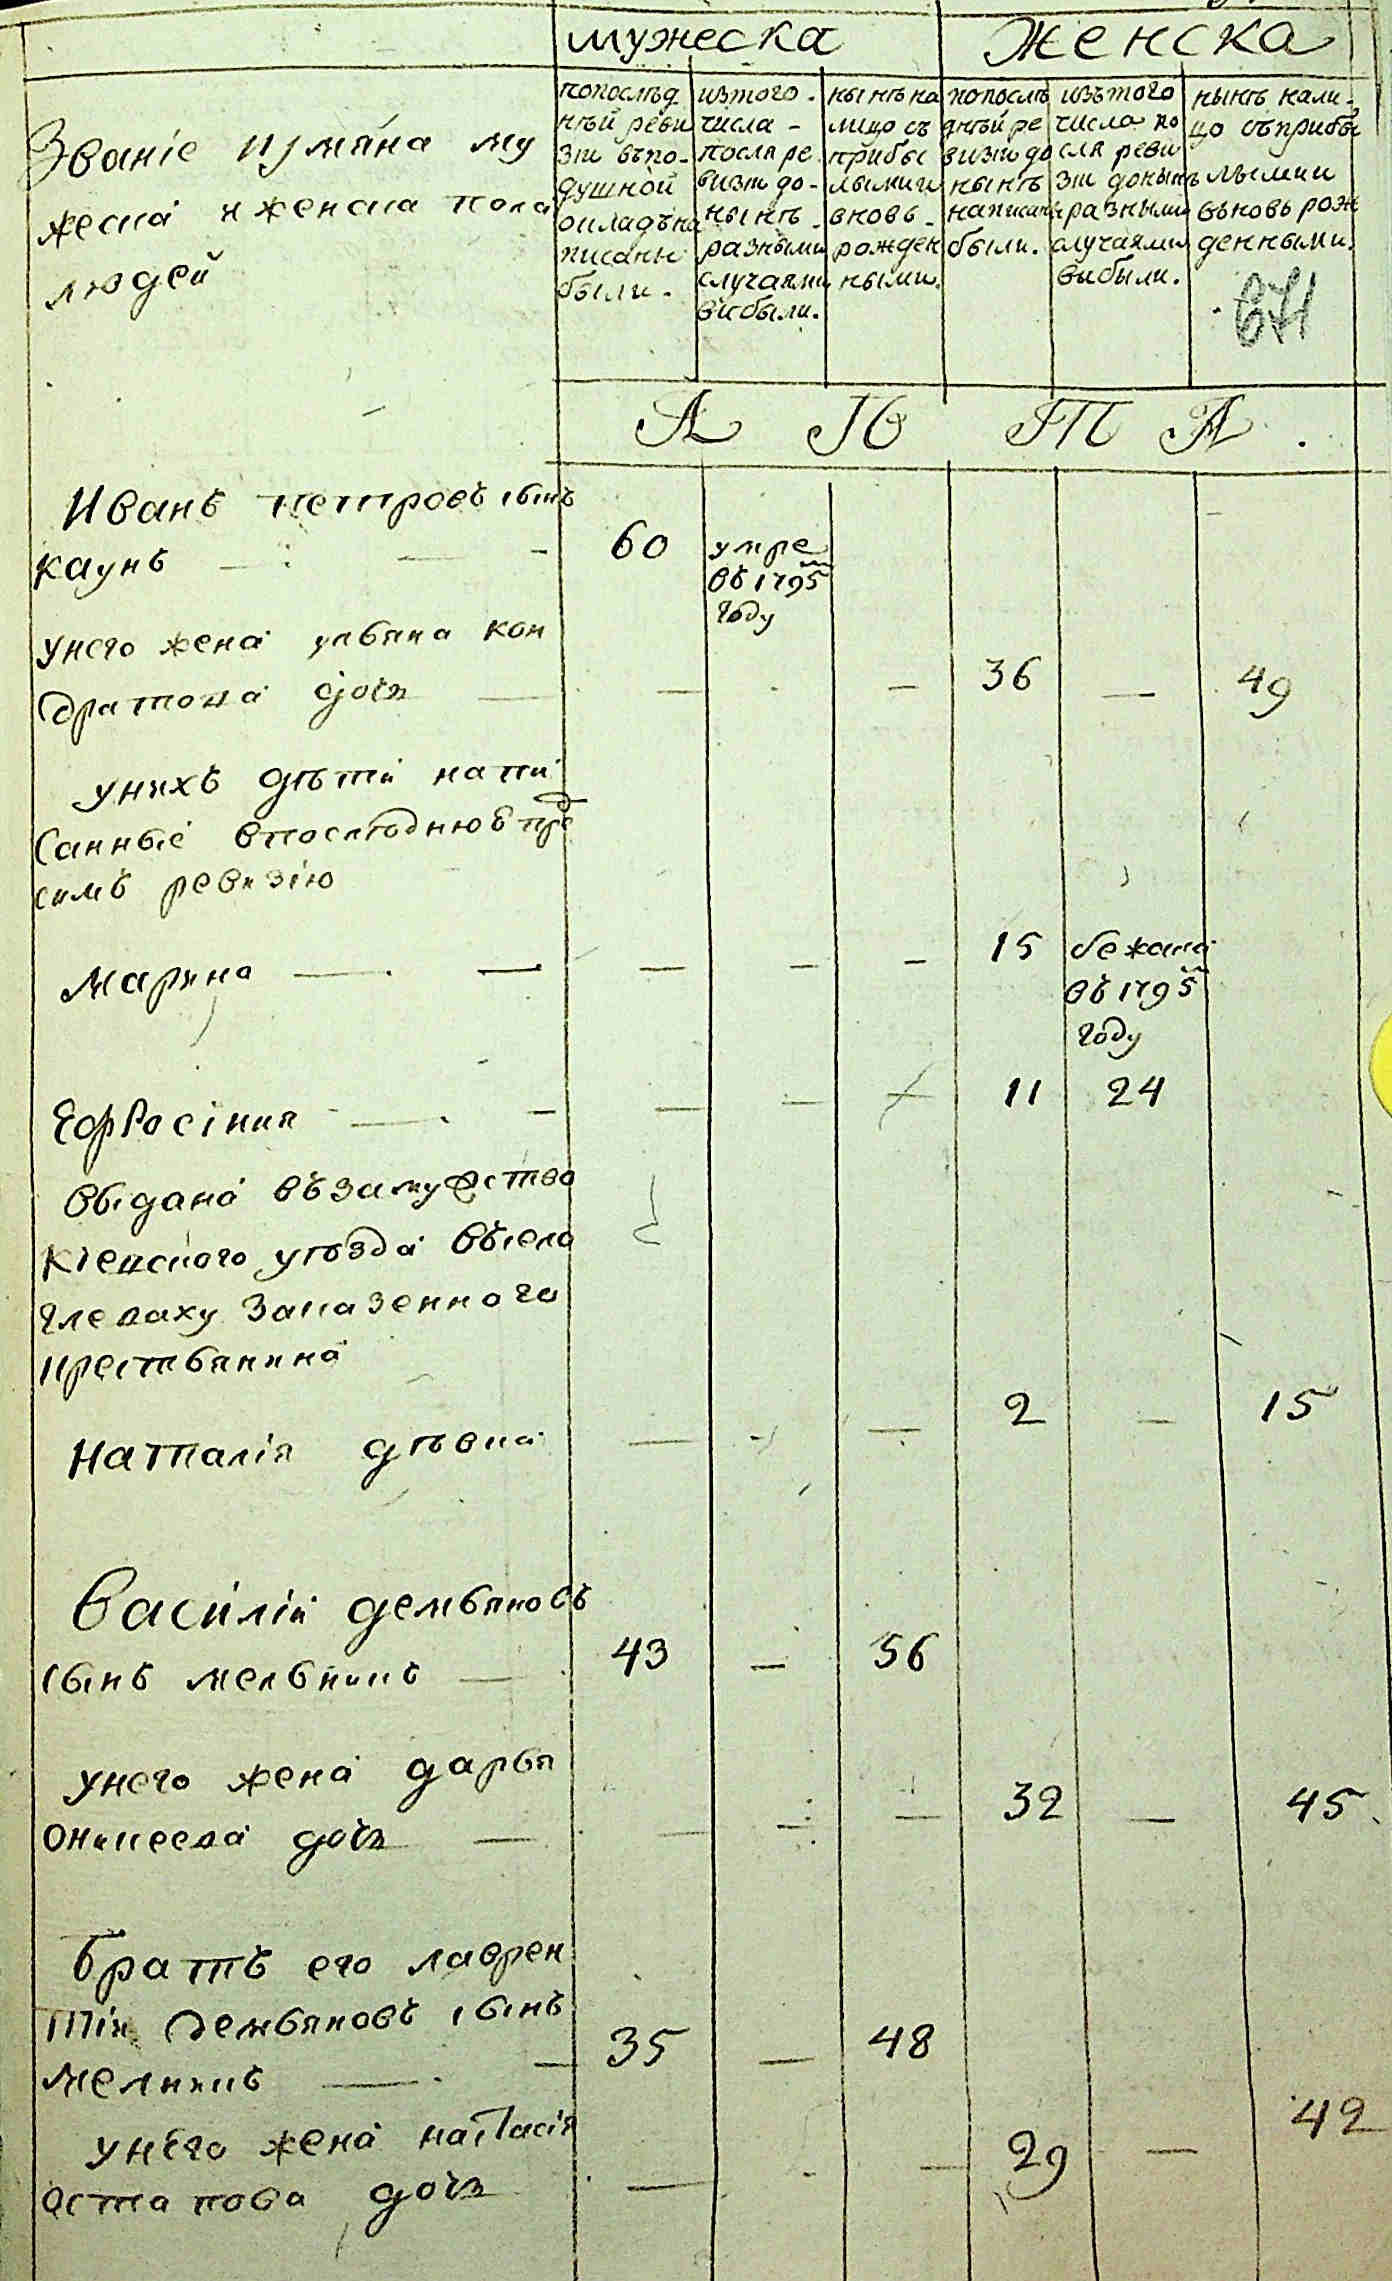 мужеска женска
Званіе иимяна му
жеска иженска пола
людей
попослѣд
нѣй реви
зіи въпо-
душной
окладъна
писаны
были.
изтого
числа
посля ре
визіи до-
нынѣ
разными
случаями
выбыли.
нынѣ на
лицо съ
прибы
лыми и
вновь
рожден
ными.
попослѣ
днѣй ре
визіи до
нынѣ
написаны
были.
изътого
числа по
сля реви
зіи донынѣ
разными
случаями
выбыли.
нынѣ нали
цо съприбы
лыми и
вьновь рож
денными.
671
Л Ѣ Т А
Иванъ петровъ сынъ
каунъ 60 умре
въ 1795
году
унего жена ульяна кон
дратова дочь — — 36 — 49
унихъ дѣти напи
санные впослюднюю пре
симъ ревизію
марина — — — — — 15 бежала
въ 1795
году
Ефросіния — — — — — 11 24
выдана възамужство
Кіевского уѣзда въсело
глеваху заказенного
крестьянина
наталія дѣвка — — — 2 — 15
василій демьяновъ
сынъ мельникъ — 43 — 56
унего жена дарья
оникеева дочь — — — — 32 — 45
братъ его лаврен
тій демьяновъ сынъ
мелникъ — — 35 — 48
унего жена настасія
остапова дочь — — 29 — 42